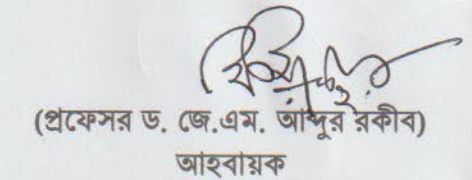 (প্রফেসর ড. জে.এম. আব্দুর রকীব)
আহবায়ক